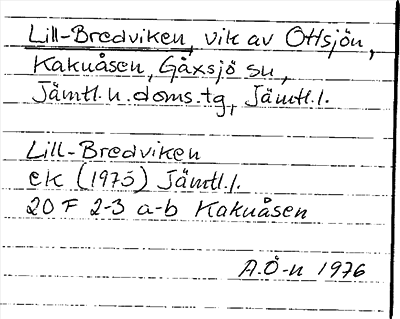 Lill-Bredviken, vik av Ottsjön,
Kakuåsen, Gåxsjö sn,
Jämtl. n. doms. tg, Jämtl. l.
Lill-Bredviken
ek (1975) Jämtl. l.
20 F 2-3 a-b Kakuåsen
A.Ö-n 1976